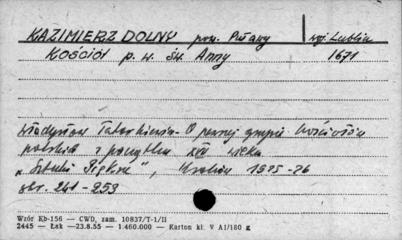 KAZIMIERZ DOLNY pow. Puławy woj. Lublin
Kościół p. w. św. Anny 1671
Władysław Tatarkiewicz - O pewnej grupie kościołów
polskich z początku XVII wieku
„Sztuki Piękne", Kraków 1925-26
str. 241-259
Wzór Kb-156 — CWD, zam. 10837/T-1/II
2445 — Łsk — 23.8.55 — 1.460.000 — Karton kl. V A1/180 g